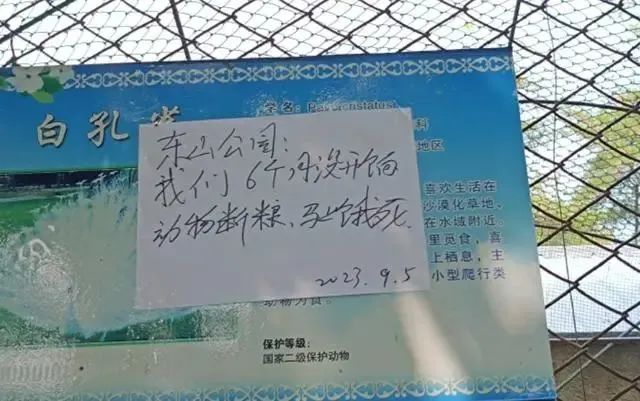 白孔
学名：
科
地区
东山公园：
我们6个月没开饷
动物断粮、马上饿死.
2023.9.5
喜欢生活在
沙漠化草地、
在水域附近。
里觅食，喜
上栖息，主
小型爬行类
动物为食。
保护等级：
国家二级保护动物